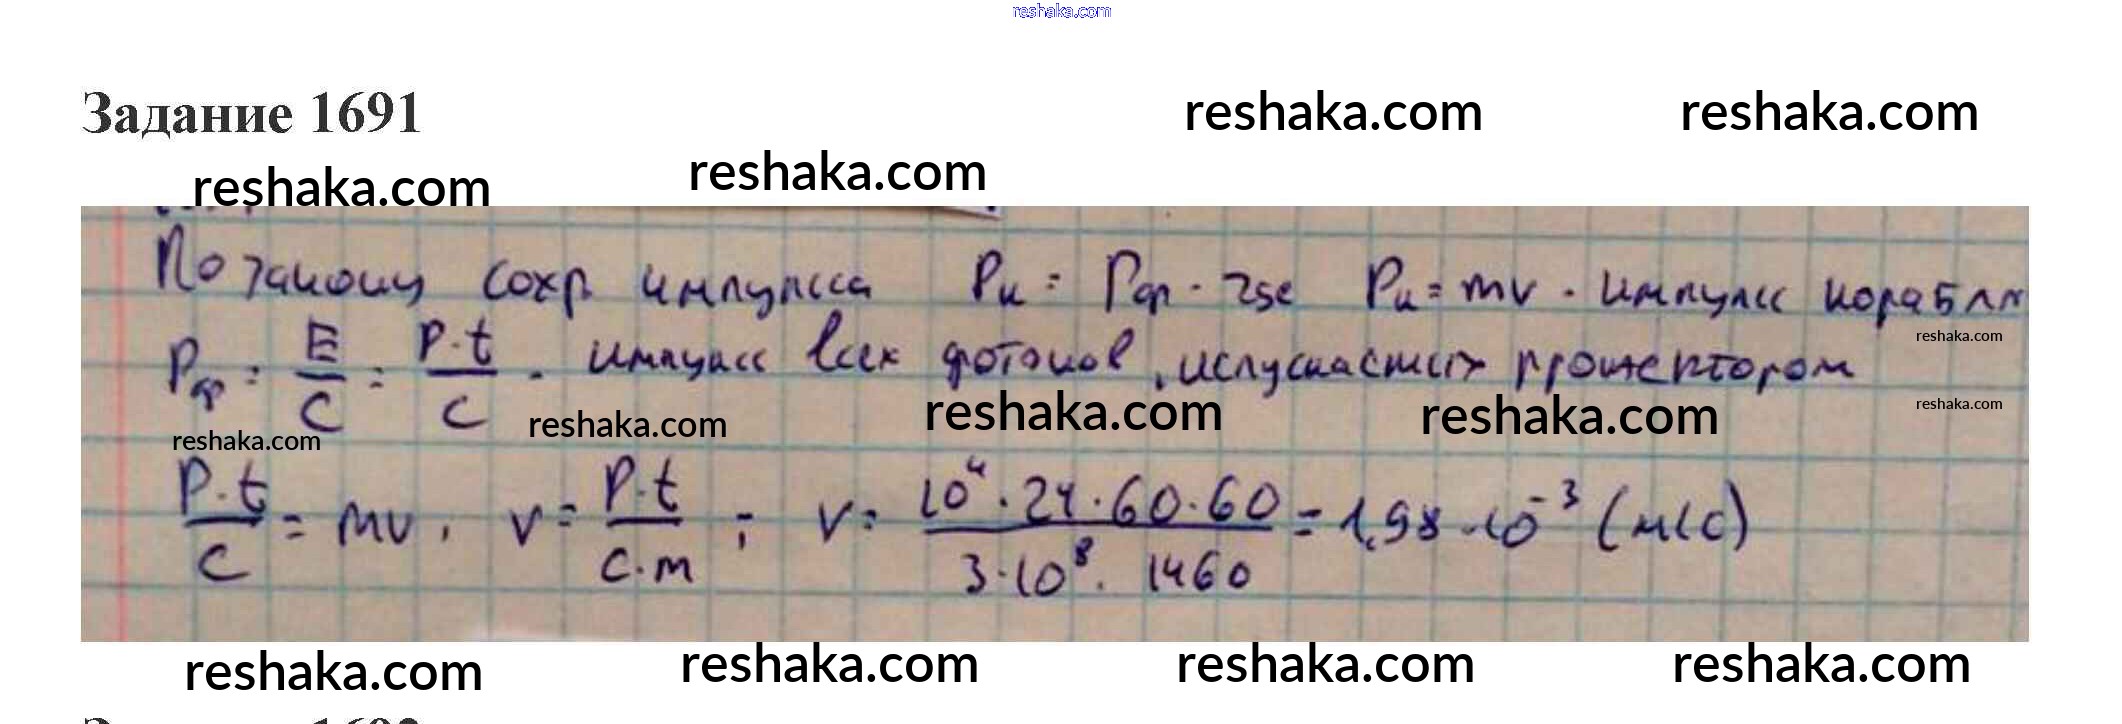 reshaka.com
Задание 1691
reshaka.com reshaka.com
reshaka.com reshaka.com
По закону сохр. импульса Pк = Pф - где Pк = mv - импульс корабля
reshaka.com
Pф = E/c = P·t/c - импульс всех фотонов, испускаемых прожектором
reshaka.com reshaka.com reshaka.com
reshaka.com reshaka.com
P·t/c = mv, v = P·t/c·m ; v = 10⁴·24·60·60/3·10⁸·1460 = 1,98·10⁻³ (м/с)
reshaka.com reshaka.com reshaka.com reshaka.com